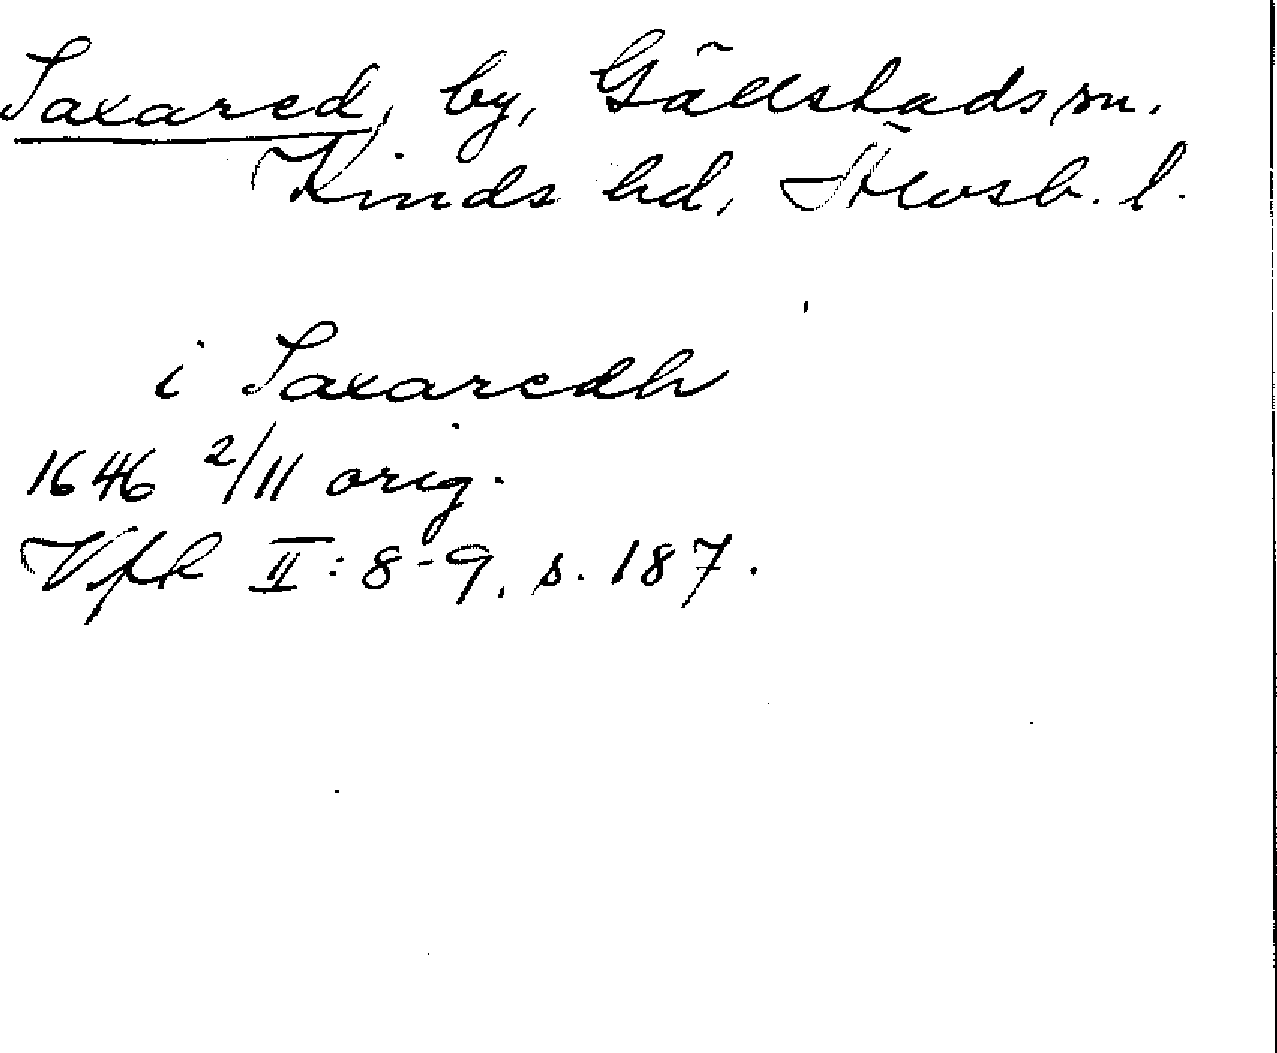 Saxared, by, Gällstads sn.
Kinds hd, Älvsb. l.
i Saxaredh
1646 2/11 orig.
VfR II: 8-9, s. 187.